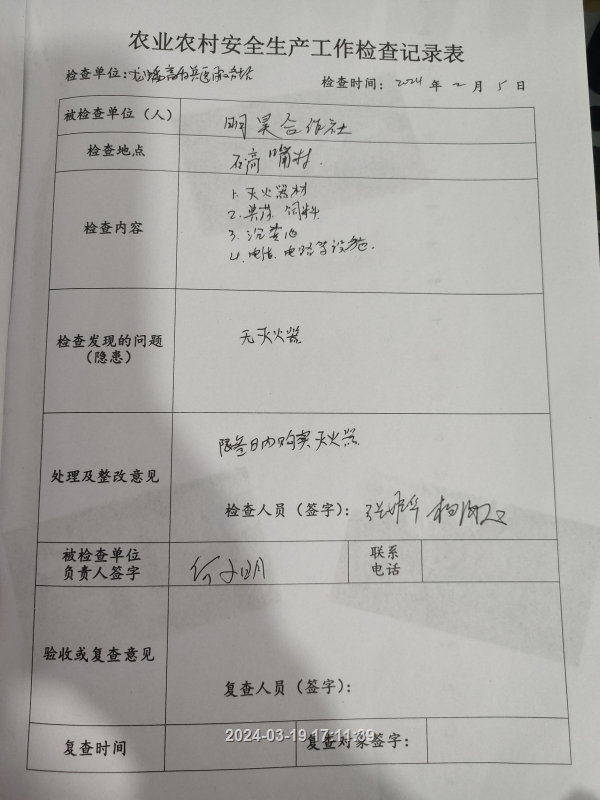 农业农村安全生产工作检查记录表
检查单位：
检查时间： 2024 年 2 月 5 日
被检查单位（人） 明昊合作社
检查地点 石膏嘴村.
检查内容
1. 灭火器材
2. 兽药 饲料
3. 沉粪池
4. 电线. 电路等设施.
检查发现的问题
（隐患）
无灭火器
处理及整改意见
限叁日内购买灭火器
检查人员（签字）：
被检查单位
负责人签字
联系
电话
验收或复查意见
复查人员（签字）：
复查时间
复查对象签字：
2024-03-19 17:11:39